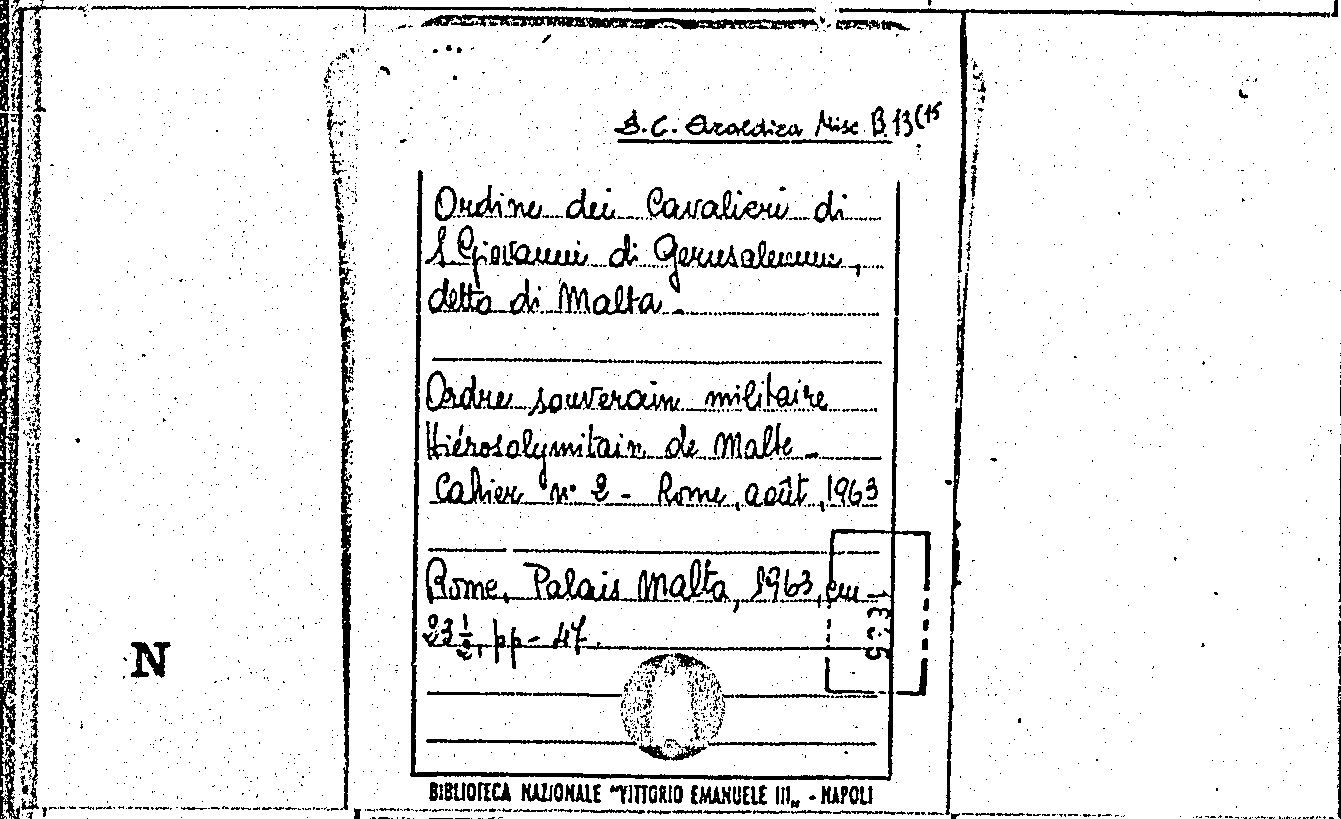 S.C. Araldica Misc B.13(15
Ordine dei Cavalieri di
S Giovanni di Gerusalemme,
detto di Malta.
Ordre souverain militaire
Hiérosolymitain de Malte -
Cahier n° 2 - Rome, août, 1963
Rome, Palais Malta, 1963, cm
23 1/2, pp- 47.
N
BIBLIOTECA NAZIONALE "VITTORIO EMANUELE III„ - NAPOLI